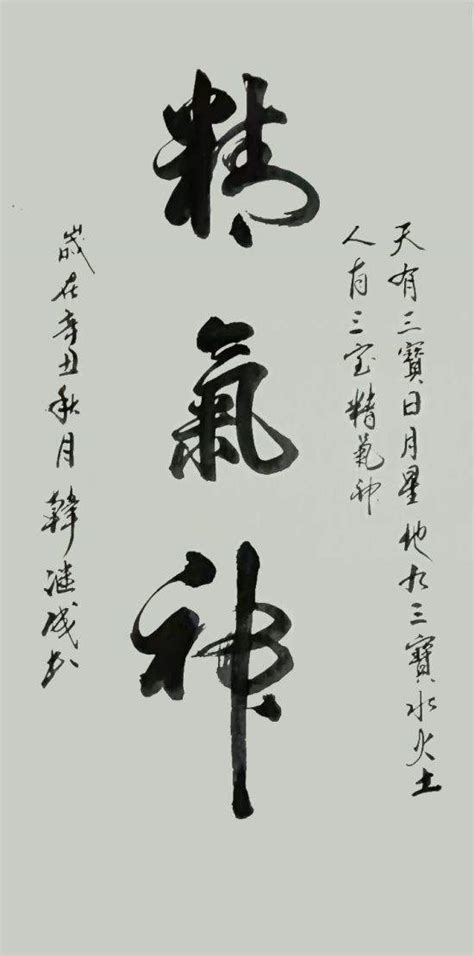 天有三寶日月星地有三寶水火土
人有三宝精氣神
精氣神
歲在辛丑秋月韓成书